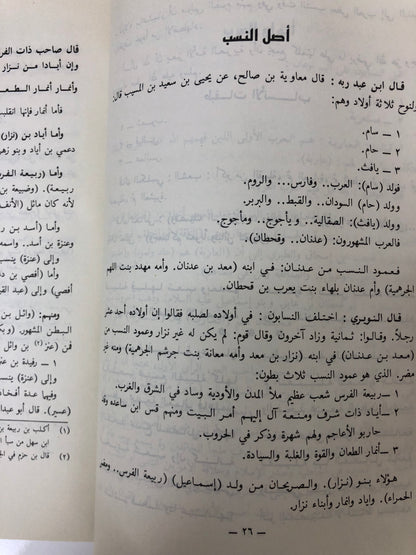 أصل النسب
قال ابن عبد ربه : قال معاوية بن صالح، عن يحيى بن سعيد بن المسيب قال:
ولنوح ثلاثة أولاد وهم:
١ – سام.
٢ – حام.
٣ – يافث.
فولد (سام): العرب.. وفارس... والروم.
وولد (حام) السودان.. والقبط.. والبربر.
وولد (يافث): الصقالية.. ويأجوج.. ومأجوج.
فالعرب المشهورون: (عدنان.. وقحطان).
فعمود النسب من عدنان: في ابنه (معد بن عدنان. وأمه مهدد بنت اللهم
الجرهمية) وأم عدنان بلهاء بنت يعرب بن قحطان.
قال النويري : اختلف النسابون : في أولاده لصلبه فقالوا إن أولاده أحد عشر
رجلاً. وقالوا: ثمانية وزاد آخرون وقال قوم: لم يكن له غير نزار وعمود النسب من
(معد بن عدنان) في ابنه (نزار بن معد وأمه معانة بنت جرشم الجرهمية) ومنه غير
مضر. الذي هو عمود النسب ثلاث بطون:
١ – ربيعة الفرس شعب عظيم ملأ المدن والأودية وساد في الشرق والغرب.
٢ – أياد ذات شرف ومنعة آل إليهم أمر البيت ومنهم قس ابن ساعده وقد
حاربو الأعاجم ولهم شهرة وذكر في الحروب.
٣ – أنمار الطعان والقوة والغلبة والسيادة.
هؤلاء بنو (نزار). والصريحان من ولد (إسماعيل) (ربيعة الفرس.. ومضر
الحمراء). واياد وانمار وأبناء نزار.
– ٢٦ –
قال صاحب ذات الفر
وإن أيادا من نزار
وأنمار أنمار الطعـ
فأما أنمار فإنها انقلبـ
وأما أياد بن (نزار)
دعمي بن أياد وبنو زهر
وأما (ربيعة الفرس
ربيعة). (وضبيعة بن
لأنه كان مائل (الأنف
وأما (أسد بن ر
وعنزة بن أسد.. واسمه
(عنزة) ينتسـ
وأما (أفصى بن د
أفصى) وإلى (عبد القيـ
ومنهم: (وائل بـ
البطن المشهور (وبكـ
فمن (عنز (٢) بن وائل
١ – رفيدة بن عنـ
(عنزة) ينتسبـ
وفيما عدة أفخاذ
(عسير). قال أبو عبدا
(١) أكلب بن ربيعة بن
ابن سهل من سبأ ا
(٢) قال بن حزم في الجـ